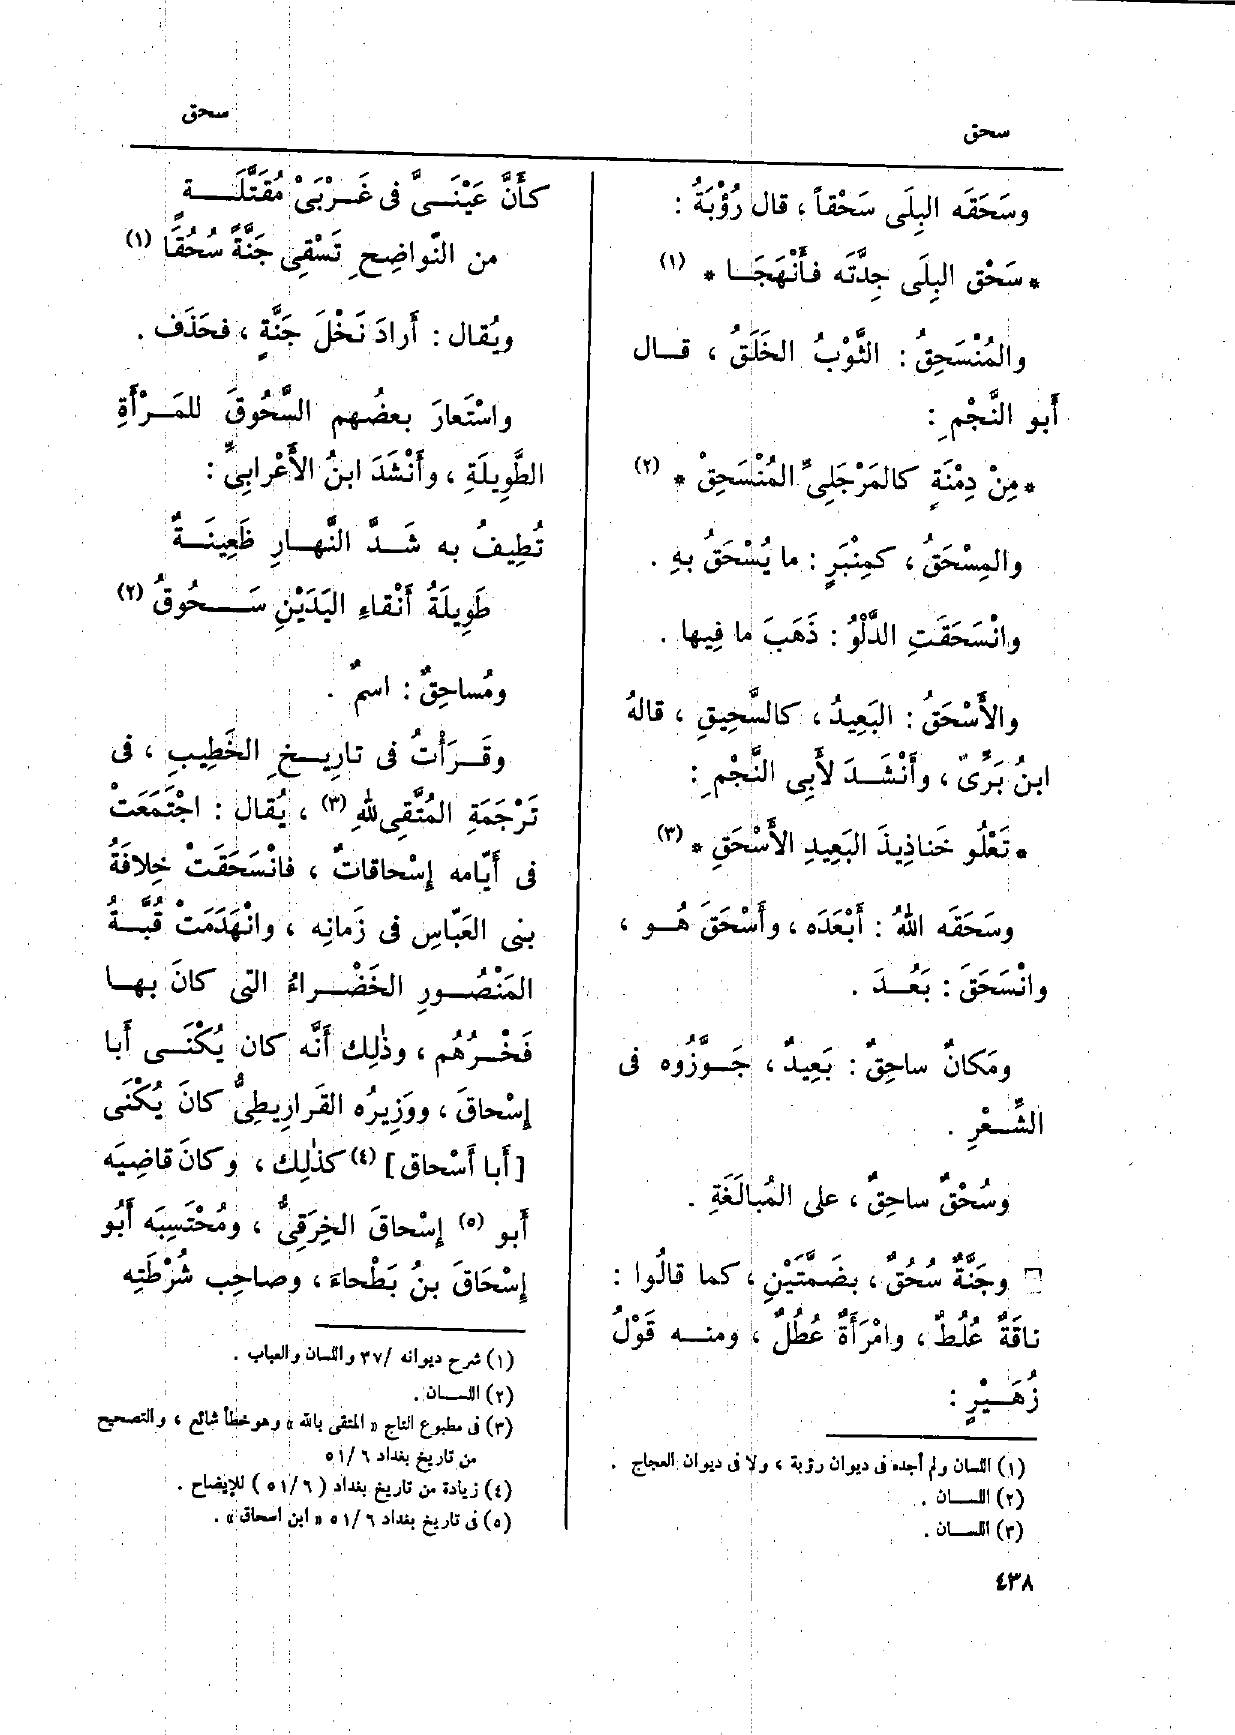 سحق
سحق
وسَحَقَه البِلَى سَحْقاً ، قال رُؤْبَةُ :
* سَحْق البِلَى جِدَّتَه فأَنْهَجَا * (١)
والمُنْسَحِقُ : الثَّوْبُ الخَلَقُ ، قال
أَبو النَّجْمِ :
* مِنْ دِمْنَةٍ كالمَرْجَلِىِّ المُنْسَحِقْ * (٢)
والمِسْحَقُ ، كمِنْبَرٍ : ما يُسْحَقُ بهِ .
وانْسَحَقَتِ الدَّلْوُ : ذَهَبَ ما فِيها .
والأَسْحَقُ : البَعِيدُ ، كالسَّحِيقِ ، قالهُ
ابنُ بَرِّىّ ، وأَنْشَدَ لأَبِى النَّجْمِ :
* تَعْلُو خَناذِيذَ البَعِيدِ الأَسْحَقِ * (٣)
وسَحَقَه اللهُ : أَبْعَدَه ، وأَسْحَقَ هُو ،
وانْسَحَقَ : بَعُدَ .
ومَكانٌ ساحِقٌ : بَعِيدٌ ، جَوَّزُوه فى
الشِّعْرِ .
وسُحْقٌ ساحِقٌ ، على المُبالَغَةِ .
وجَنَّةٌ سُحُقٌ ، بضَمَّتَيْنِ ، كما قالُوا :
ناقَةٌ عُلُطٌ ، وامْرَأَةٌ عُطُلٌ ، ومنه قَوْلُ
زُهَيْرٍ :
(١) اللسان ولم أجده فى ديوان رؤبة ، ولا فى ديوان العجاج .
(٢) اللسان .
(٣) اللسان .
٤٣٨
كأَنَّ عَيْنَىَّ فى غَرْبَىْ مُقَتَّلَةٍ
من النَّواضِحِ تَسْقِى جَنَّةً سُحُقَا (١)
ويُقال : أَرادَ نَخْلَ جَنَّةٍ ، فحَذَف .
واسْتَعارَ بعضُهم السَّحُوقَ للمَرْأَةِ
الطَّوِيلَةِ ، وأَنْشَدَ ابنُ الأَعْرابِىِّ :
تُطِيفُ به شَدَّ النَّهارِ ظَعِينَةٌ
طَوِيلَةُ أَنْقاءِ اليَدَيْنِ سَحُوقُ (٢)
ومُساحِقٌ : اسمٌ .
وقَرَأْتُ فى تارِيخِ الخَطِيبِ ، فى
تَرْجَمَةِ المُتَّقِى للهِ (٣) ، يُقال : اجْتَمَعَتْ
فى أَيّامه إِسْحاقاتٌ ، فانْسَحَقَتْ خِلافَةُ
بنى العَبّاسِ فى زَمانِه ، وانْهَدَمَتْ قُبَّةُ
المَنْصُورِ الخَضْراءُ التى كانَ بها
فَخْرُهُم ، وذٰلِك أَنَّه كان يُكْنَى أَبا
إِسْحاقَ ، ووَزِيرُه القَرارِيطِىُّ كانَ يُكْنَى
[أَبا أَسْحاق] (٤) كذٰلِك ، وكانَ قاضِيَه
أَبو (٥) إِسْحاقَ الخِرَقِىُّ ، ومُحْتَسِبَه أَبُو
إِسْحَاقَ بنُ بَطْحاءَ ، وصاحِب شُرْطَتِه
(١) شرح ديوانه /٣٧ واللسان والعباب .
(٢) اللسان .
(٣) فى مطبوع التاج « المتقى بالله » وهو خطأ شائع ، والتصحيح
من تاريخ بغداد ٥١/٦
(٤) زيادة من تاريخ بغداد ( ٥١/٦ ) للإيضاح .
(٥) فى تاريخ بغداد ٥١/٦ « ابن اسحاق » .